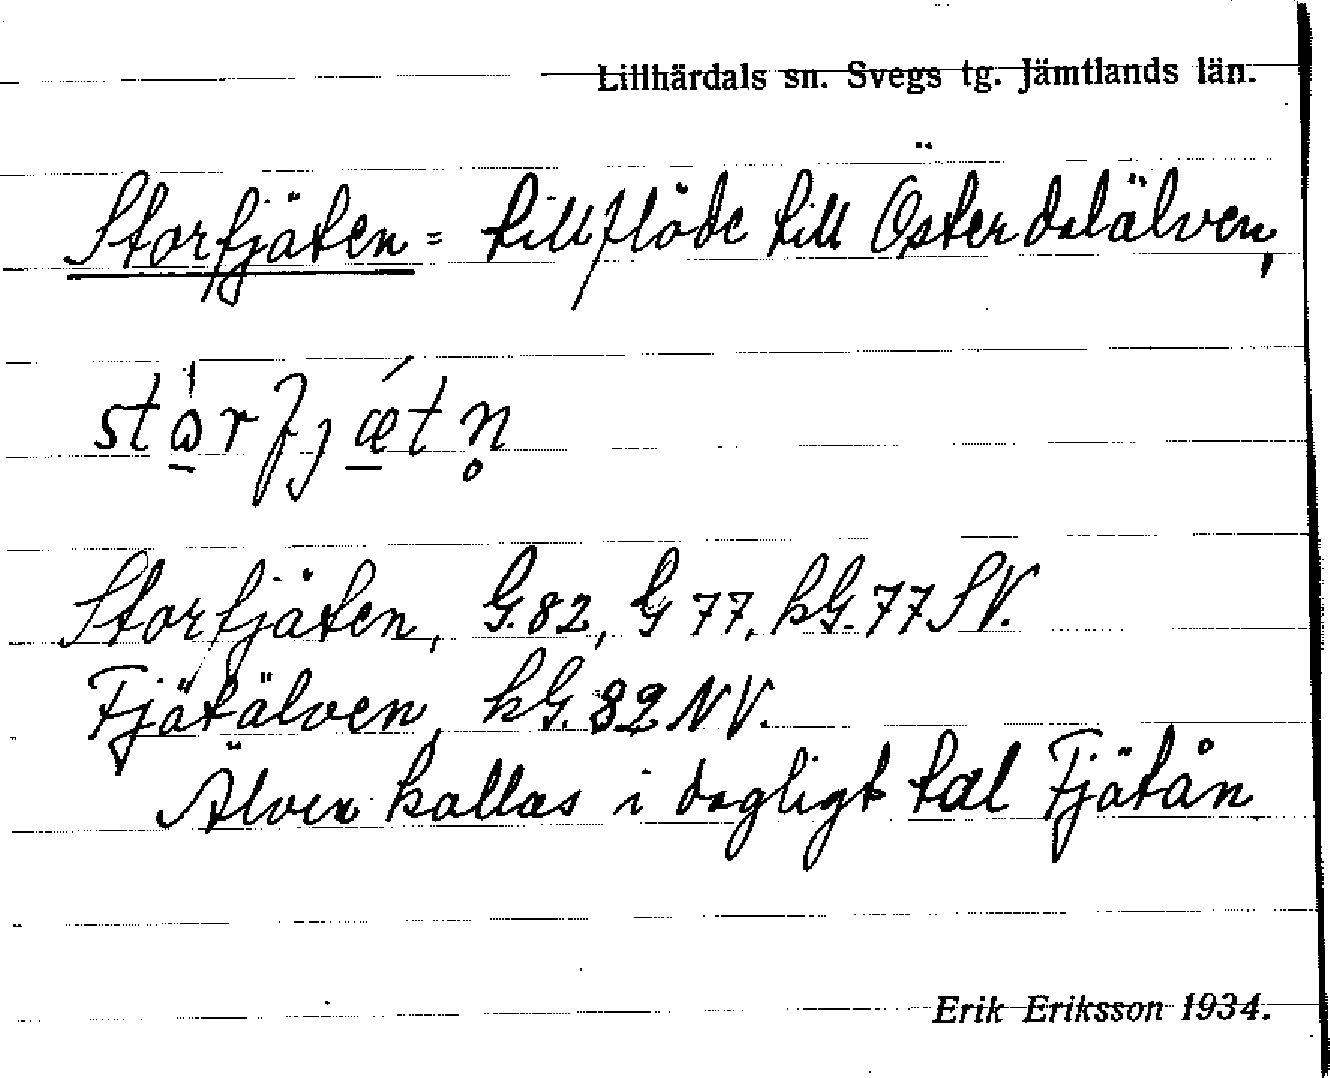 Lillhärdals sn. Svegs tg. Jämtlands län.
Storfjäten = tillflöde till Österdalälven,
stὼrfjǽtn̥
Storfjäten, G.82, G 77, kG.77 SV.
Fjätälven, kG. 82 NV.
Älven kallas i dagligt tal Fjätån
Erik Eriksson 1934.